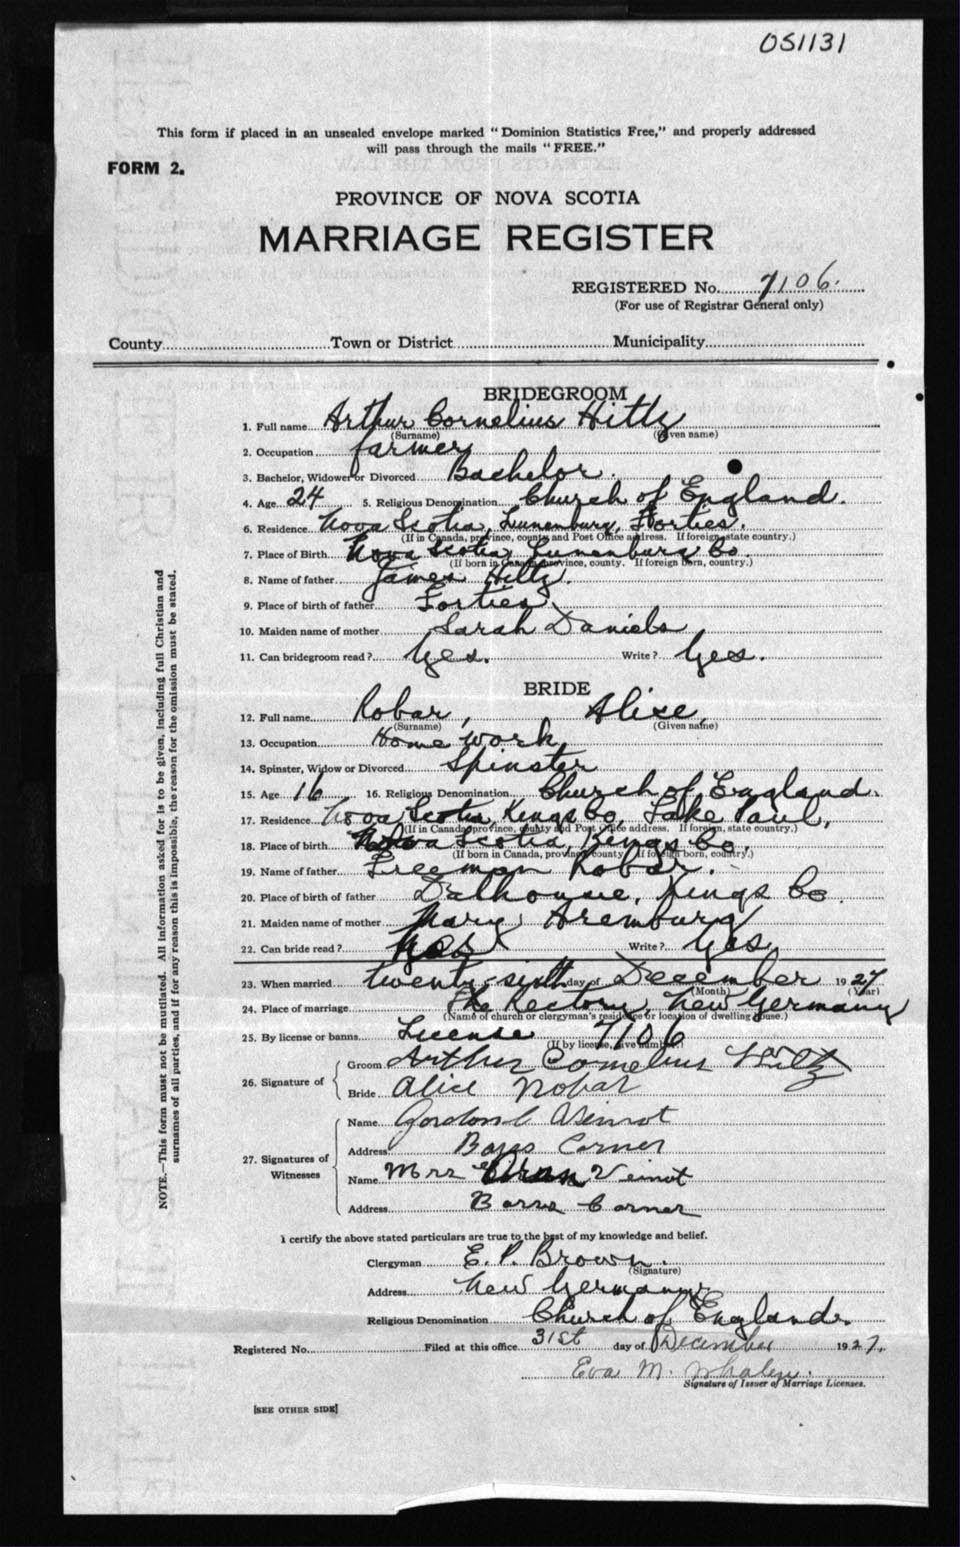 051131
This form if placed in an unsealed envelope marked "Dominion Statistics Free," and properly addressed
will pass through the mails "FREE."
FORM 2.
PROVINCE OF NOVA SCOTIA
MARRIAGE REGISTER
REGISTERED No. 7106.
(For use of Registrar General only)
County Town or District Municipality
BRIDEGROOM
1. Full name Arthur Cornelius Hiltz
(Surname) (Given name)
2. Occupation farmer
3. Bachelor, Widower or Divorced Bachelor.
4. Age 24 5. Religious Denomination Church of England.
6. Residence Nova Scotia, Lunenburg, Forties.
(If in Canada, province, county and Post Office address. If foreign state country.)
7. Place of Birth Nova Scotia, Lunenburg Co.
(If born in Canada province, county. If foreign born, country.)
8. Name of father James Hiltz.
9. Place of birth of father Forties
10. Maiden name of mother Sarah Daniels
11. Can bridegroom read? Yes. Write? Yes.
BRIDE
12. Full name Robar, Alice,
(Surname) (Given name)
13. Occupation Home work
14. Spinster, Widow or Divorced Spinster
15. Age 16 16. Religious Denomination Church of England.
17. Residence Nova Scotia, Kings Co, Lake Paul,
(If in Canada province, county and Post Office address. If foreign, state country.)
18. Place of birth Nova Scotia, Kings Co.
(If born in Canada, province, county. If foreign born, country.)
19. Name of father Freeman Robar.
20. Place of birth of father Dalhousie, Kings Co.
21. Maiden name of mother Mary Aremburg
22. Can bride read? Yes Write? Yes
23. When married twenty-sixth day of December 1927
(Month) (Year)
24. Place of marriage The Rectory, New Germany
(Name of church or clergyman's residence or location of dwelling house.)
25. By license or banns License 7106
(If by license, give number.)
26. Signature of
Groom Arthur Cornelius Hiltz
Bride Alice Robar
27. Signatures of Witnesses
Name Gordon C Veinot
Address Barss Corner
Name Mrs Veinot
Address Barss Corner
I certify the above stated particulars are true to the best of my knowledge and belief.
Clergyman E. P. Brown.
(Signature)
Address New Germany
Religious Denomination Church of England.
Registered No. Filed at this office 31st day of December 1927.
Eva M. Whalen.
Signature of Issuer of Marriage Licenses.
[SEE OTHER SIDE]
NOTE.—This form must not be mutilated. All information asked for is to be given, including full Christian and
surnames of all parties, and if for any reason this is impossible, the reason for the omission must be stated.